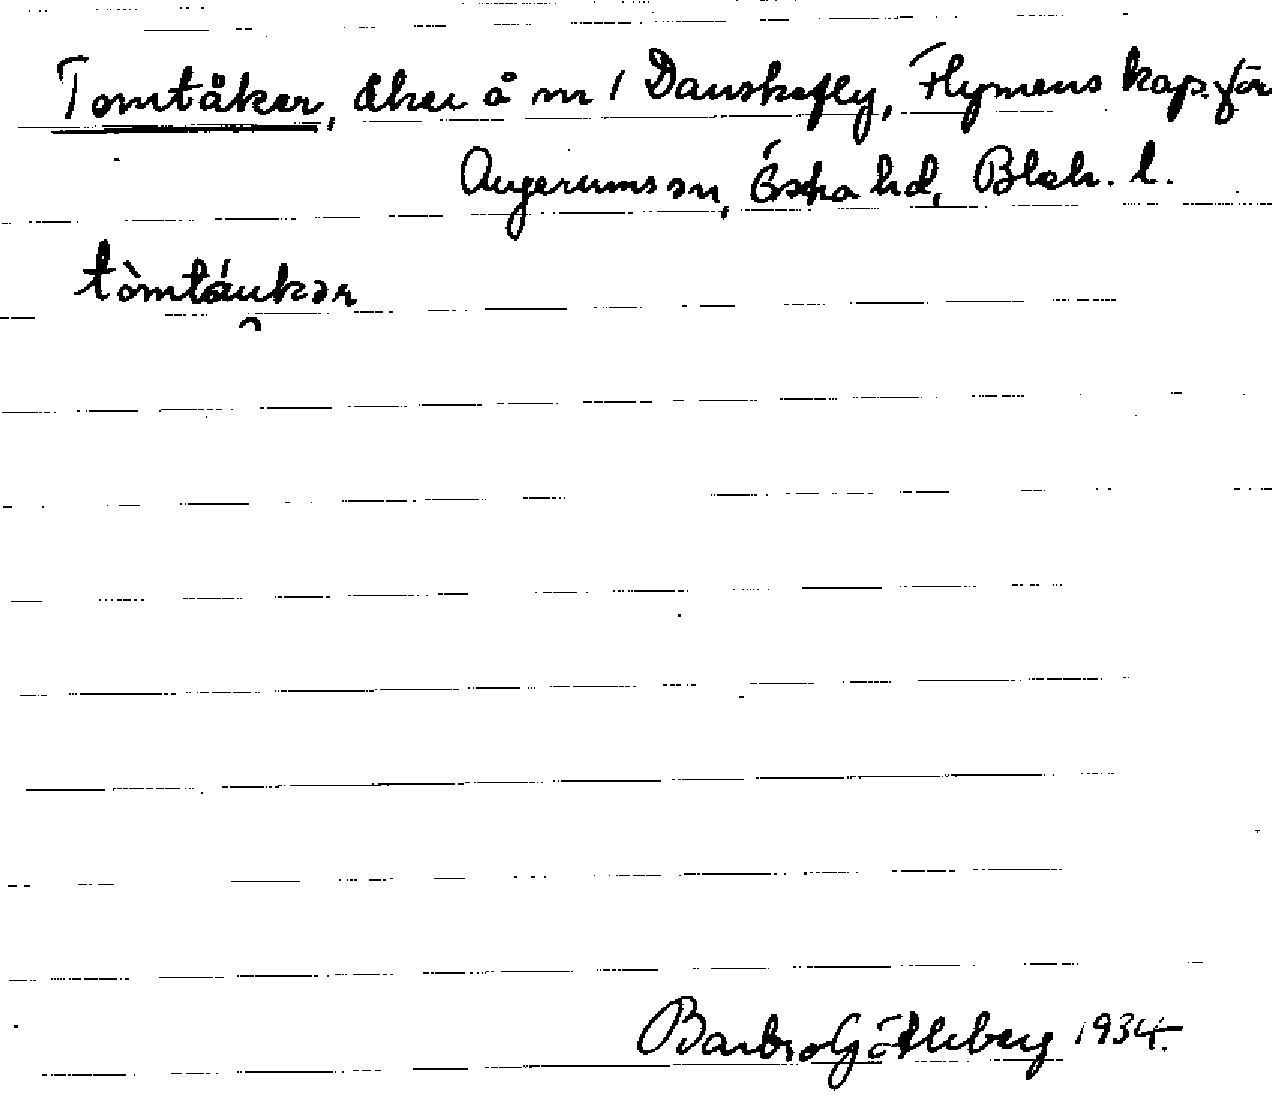 Tomtåker, åker å nr 1 Danskefly, Flymens kap.för
Augerums sn, Östra hd, Blek. l.
tòmtáukər
Barbro Götleberg 1934.